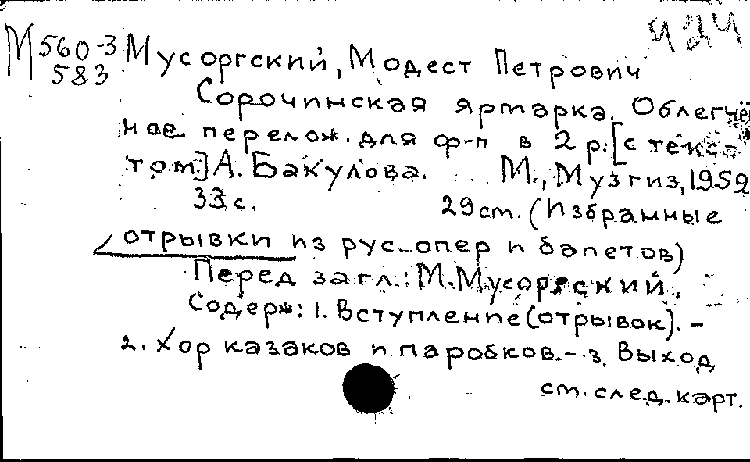 424
М 560-3 Мусоргский, Модест Петрович
583
Сорочинская ярмарка. Облегчён
ное перелож. для ф-п в 2 р. [с текс-
том] А. Бакулова. М., Музгиз, 1952
33 с. 29 см. (Избранные
отрывки из рус. опер и балетов)
Перед загл.: М. Мусоргский.
Содерж: 1. Вступление (отрывок). –
2. Хор казаков и паробков. – 3. Выход
см. след. карт.